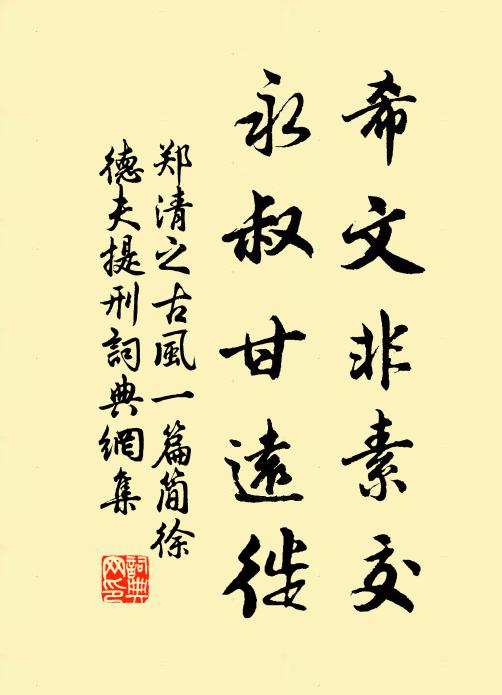 希文非素交
永叔甘遠徙
郑清之古風一篇简徐
德夫提刑詞典網集
詞典网印